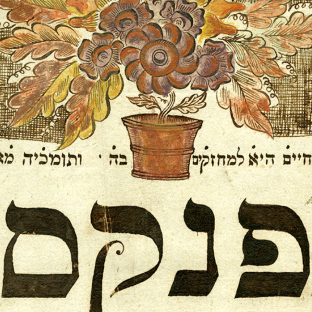 חיים היא למחזקים בה ותומכיה
פנקס